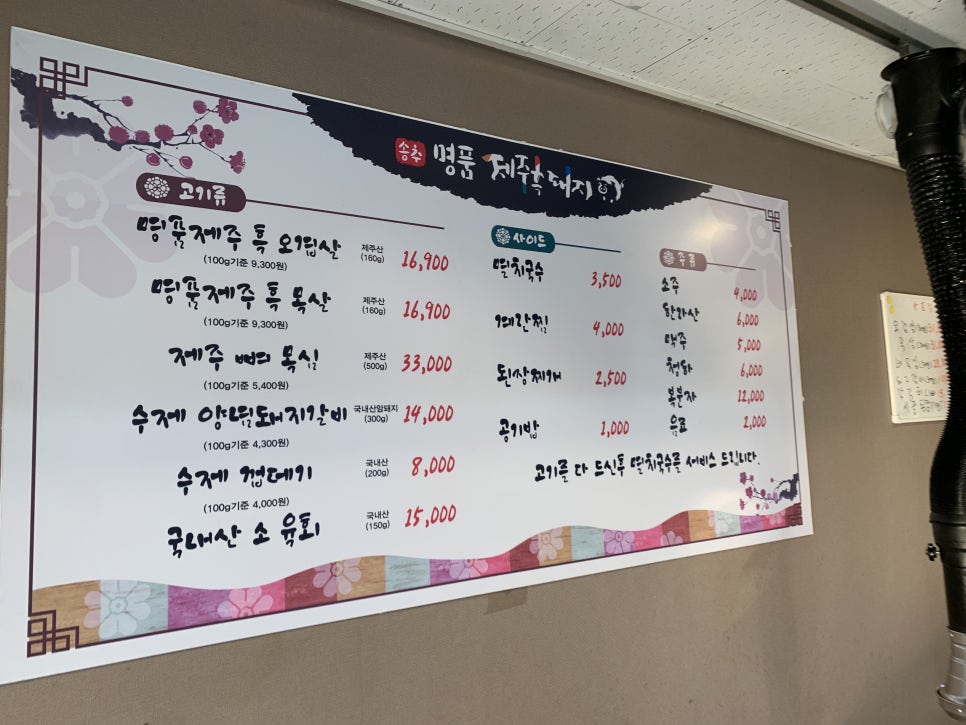 송추 명품 제주흑돼지
고기류
명품제주 흑 오겹살 제주산 (160g) 16,900
(100g기준 9,300원)
명품제주 흑 목살 제주산 (160g) 16,900
(100g기준 9,300원)
제주 뼈 목심 제주산 (500g) 33,000
(100g기준 5,400원)
수제 양념돼지갈비 국내산암돼지 (300g) 14,000
(100g기준 4,300원)
수제 껍데기 국내산 (200g) 8,000
(100g기준 4,000원)
국내산 소 육회 국내산 (150g) 15,000
사이드
멸치국수 3,500
계란찜 4,000
된장찌개 2,500
공기밥 1,000
주류
소주 4,000
한라산 6,000
맥주 5,000
청하 6,000
복분자 12,000
음료 2,000
고기를 다 드신후 멸치국수를 서비스 드립니다.